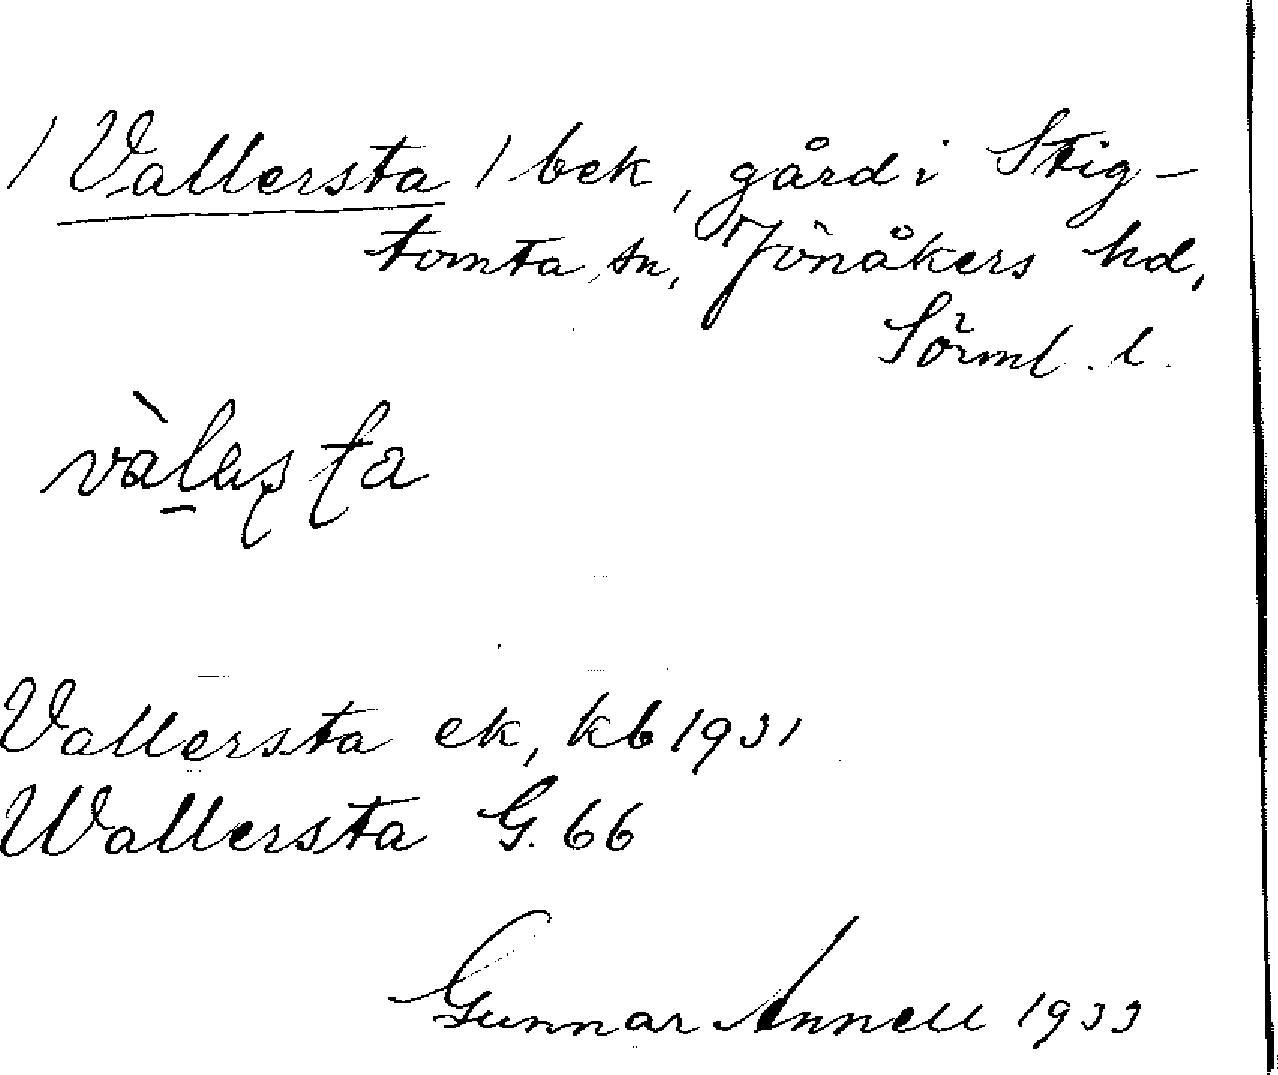 / Vallersta / bek, gård i Stig-
tomta sn, Jönåkers hd,
Sörml. l.
vàlasta
Vallersta ek, kb 1931
Wallersta G. 66
Gunnar Annell 1933